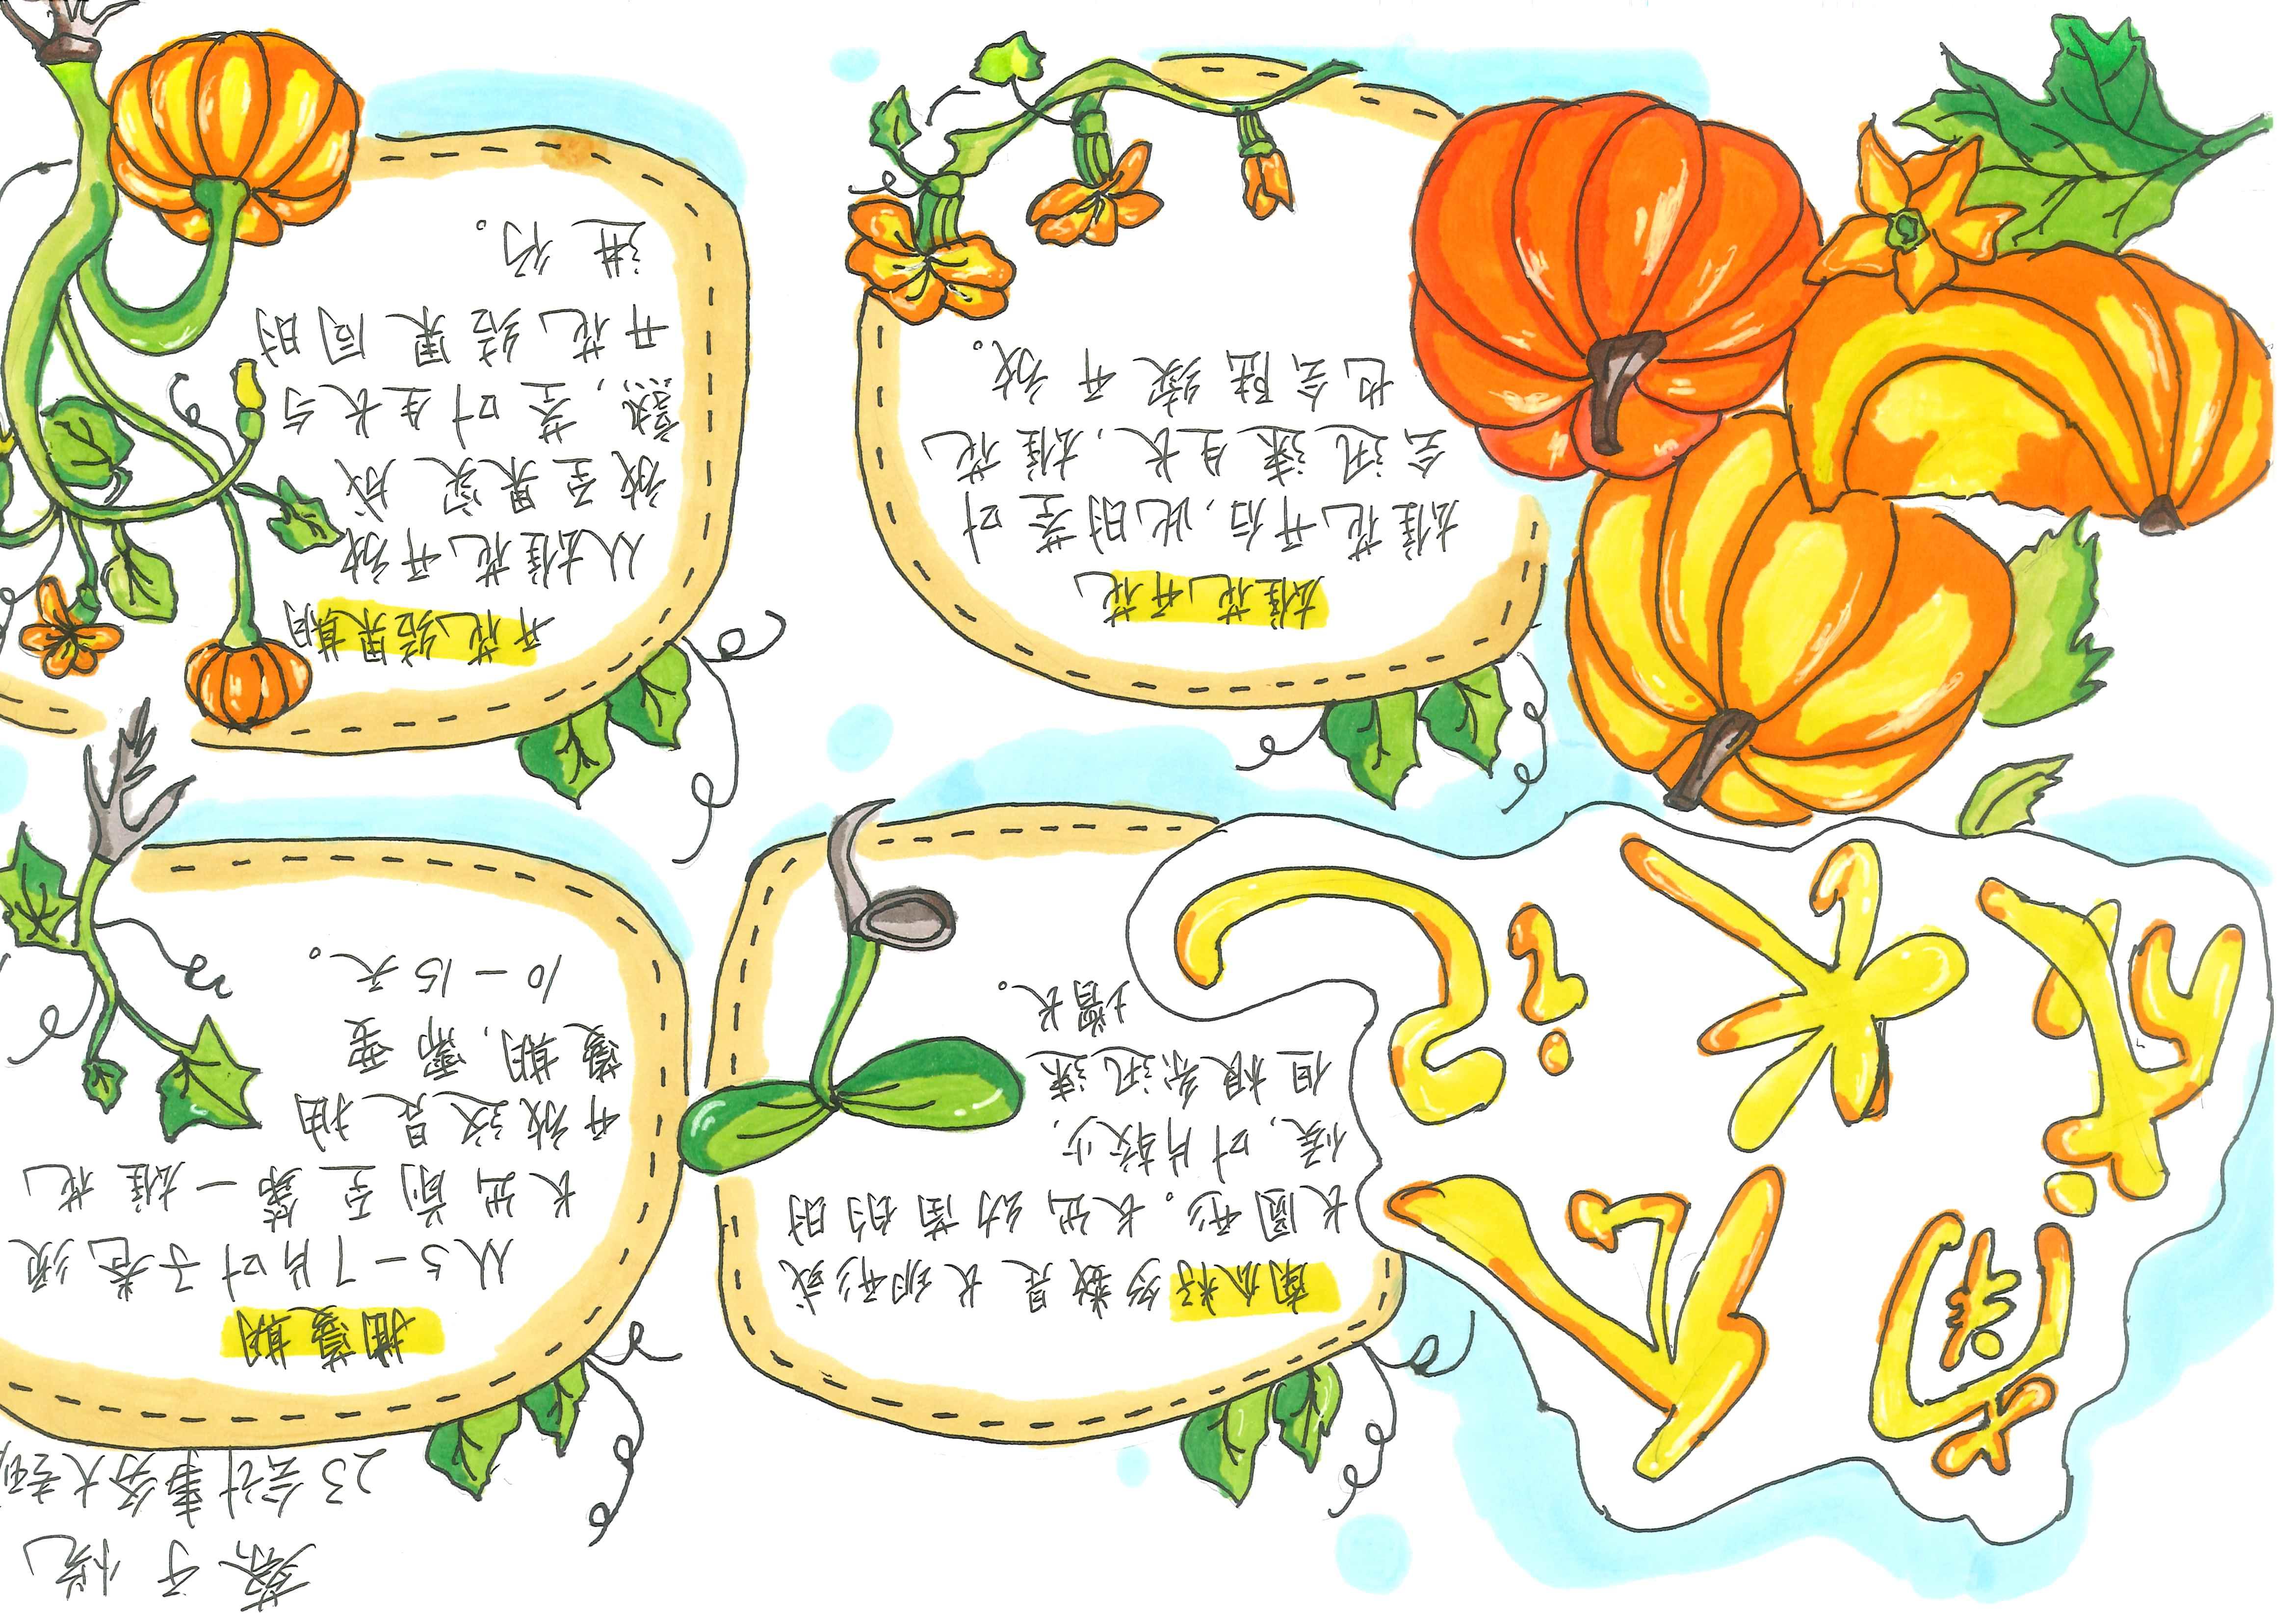 南瓜
成长记
南瓜籽多数是长卵形或
长圆形。长出幼苗的时
候，叶片较少，
但根系迅速
增长。
蔡子
23会计事务大专
抽蔓期
从5-7片叶子卷须
长出前至第一雄花
开放这是抽
蔓期，需要
10-15天。
雄花开花
雄花开后，此时茎叶
会迅速生长，雄花
也会陆续开放。
开花结果期
从雄花开放
放至果实成
熟，茎叶生长与
开花结果同时
进行。